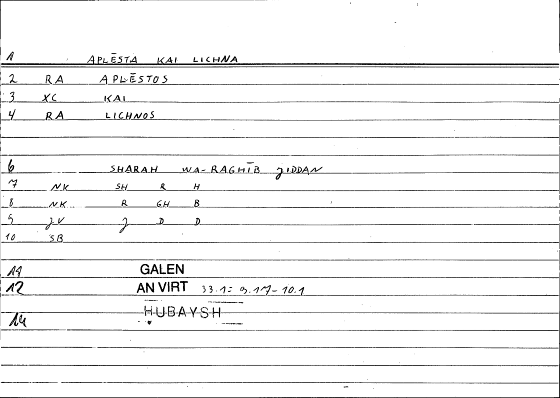 1 APLĒSTA KAI LICHNA
2 RA APLĒSTOS
3 XC KAI
4 RA LICHNOS
6 SHARAH WA-RAGHĪB JIDDAN
7 NK SH R H
8 NK R GH B
9 JV J D D
10 SB
11 GALEN
12 AN VIRT 33.1= 9.17-10.1
14 HUBAYSH